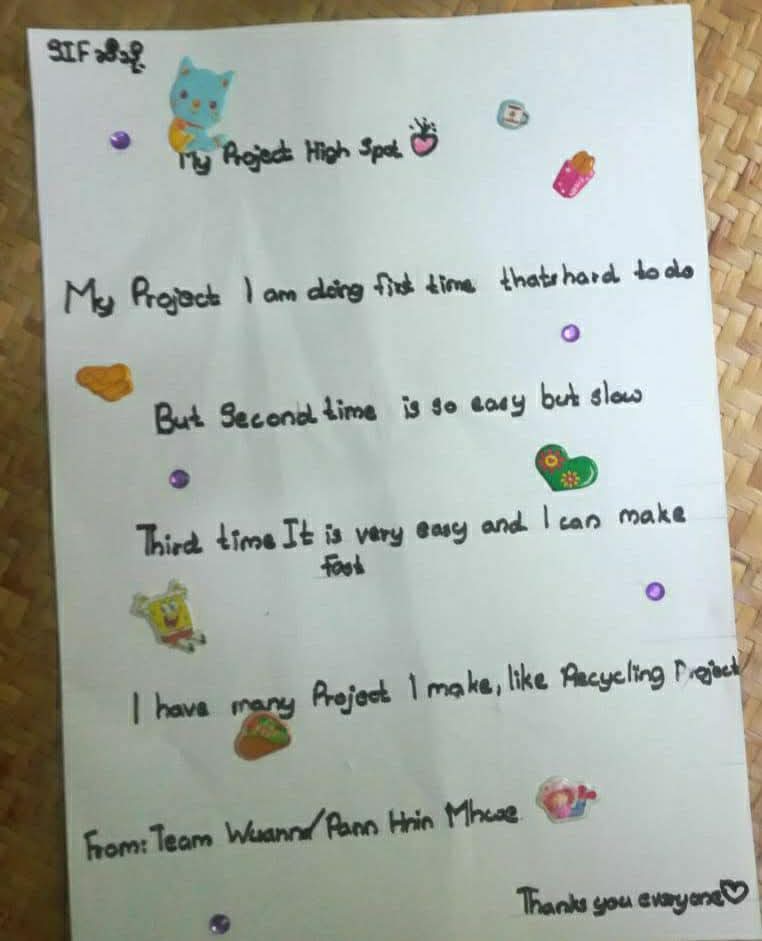 SIF
My Project High Spot
My Project I am doing first time thats hard to do
But Second time is so easy but slow
Third time It is very easy and I can make
Fast
I have many Project I make, like Recycling Project
From: Team / Pann Hnin Mhwe
Thanks you everyone